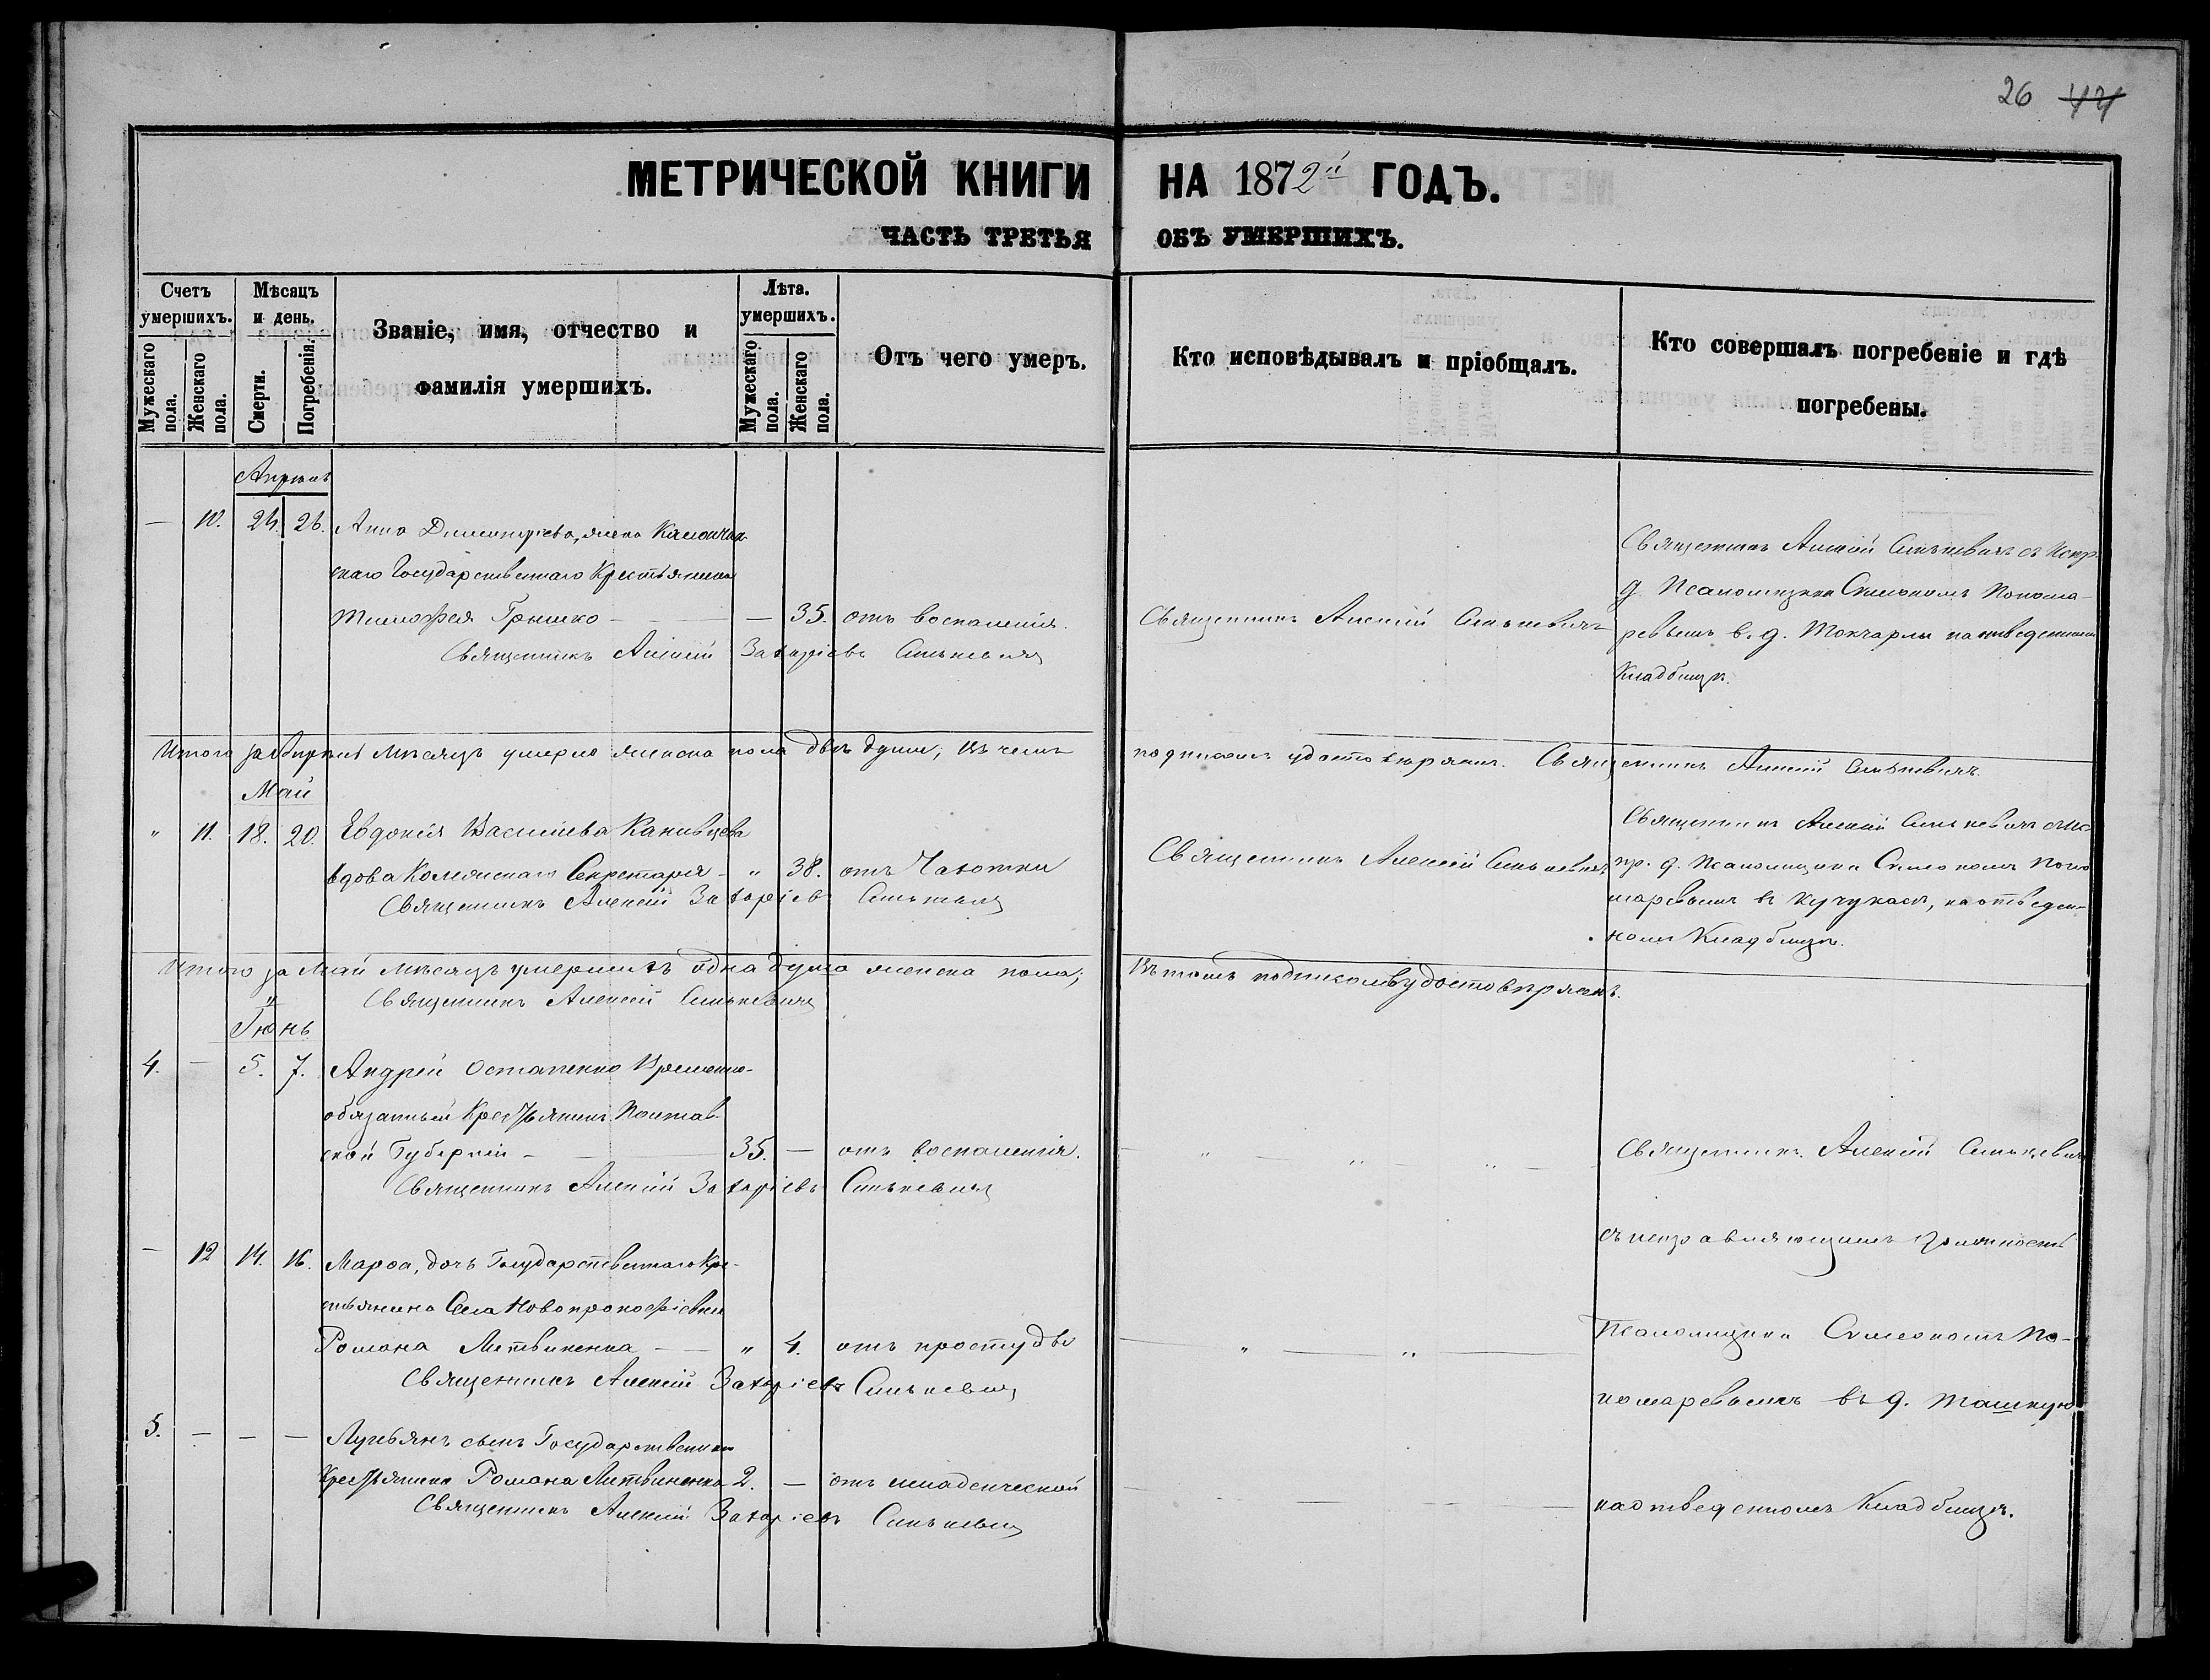 26 44
МЕТРИЧЕСКОЙ КНИГИ НА 1872й ГОДЪ.
ЧАСТЬ ТРЕТЬЯ ОБЪ УМЕРШИХЪ.
Счетъ умершихъ.
Мужескаго пола.
Женскаго пола.
Мѣсяцъ и день.
Смерти.
Погребенія.
Званіе, имя, отчество и
фамилія умершихъ.
Лѣта. умершихъ.
Мужескаго пола.
Женскаго пола.
Отъ чего умеръ.
Кто исповѣдывалъ и пріобщалъ.
Кто совершалъ погребеніе и гдѣ
погребены.
Апрѣль
— 10. 24. 26. Анна Димитріева, жена
скаго Государственнаго Крестьянина
Тимофея Гришко — — 35. отъ воспаленія.
Священникъ Алексій Захаріевъ Синькевичъ
Священникъ Алексій Синькевичъ
Священникъ Алексій Синькевичъ съ испр.
д. Псаломщика Симеономъ Понома-
ревымъ в. д. Токчары на отведенномъ
Кладбищѣ.
Итого за Апрѣль мѣсяцъ умерло женска пола двѣ души, въ чемъ подписомъ удостовѣряемъ. Священникъ Алексій Синькевичъ.
Май
" 11. 18. 20. Евдокія Васильева Канивцева
вдова Колежскаго Секретаря — " 38. отъ Чахотки
Священникъ Алексій Захаріевъ Синькевичъ
Священникъ Алексій Синькевичъ
Священникъ Алексій Синькевичъ съ ис
пр. д. Псаломщика Симеономъ Поно
маревымъ въ Кучукасъ, на отведен-
номъ Кладбищѣ.
Итого за Май мѣсяцъ умершихъ одна душа женска пола; Въ томъ подписомъ удостовѣряемъ.
Священникъ Алексій Синькевичъ
Іюнь
4. — 5. 7. Андрей Остапенко Временно-
обязанный Крестьянинъ Полтав-
ской Губерніи — 35. — отъ воспаленія.
Священникъ Алексій Захаріевъ Синькевичъ
Священникъ Алексій Синькевичъ
— 12 14. 16. Марѳа, дочь Государственнаго Кре-
стьянина Села Новопрокофіевки
Романа Литвиненка — " 4. отъ простуды
Священникъ Алексій Захаріевъ Синькевичъ
съ исправляющимъ должность
Псаломщика Симеономъ По-
номаревымъ въ д. Ташкую
5. — — — Лукьянъ сынъ Государственнаго
Крестьянина Романа Литвиненка 2. — отъ младенческой
Священникъ Алексій Захаріевъ Синькевичъ
на отведенномъ Кладбищѣ.